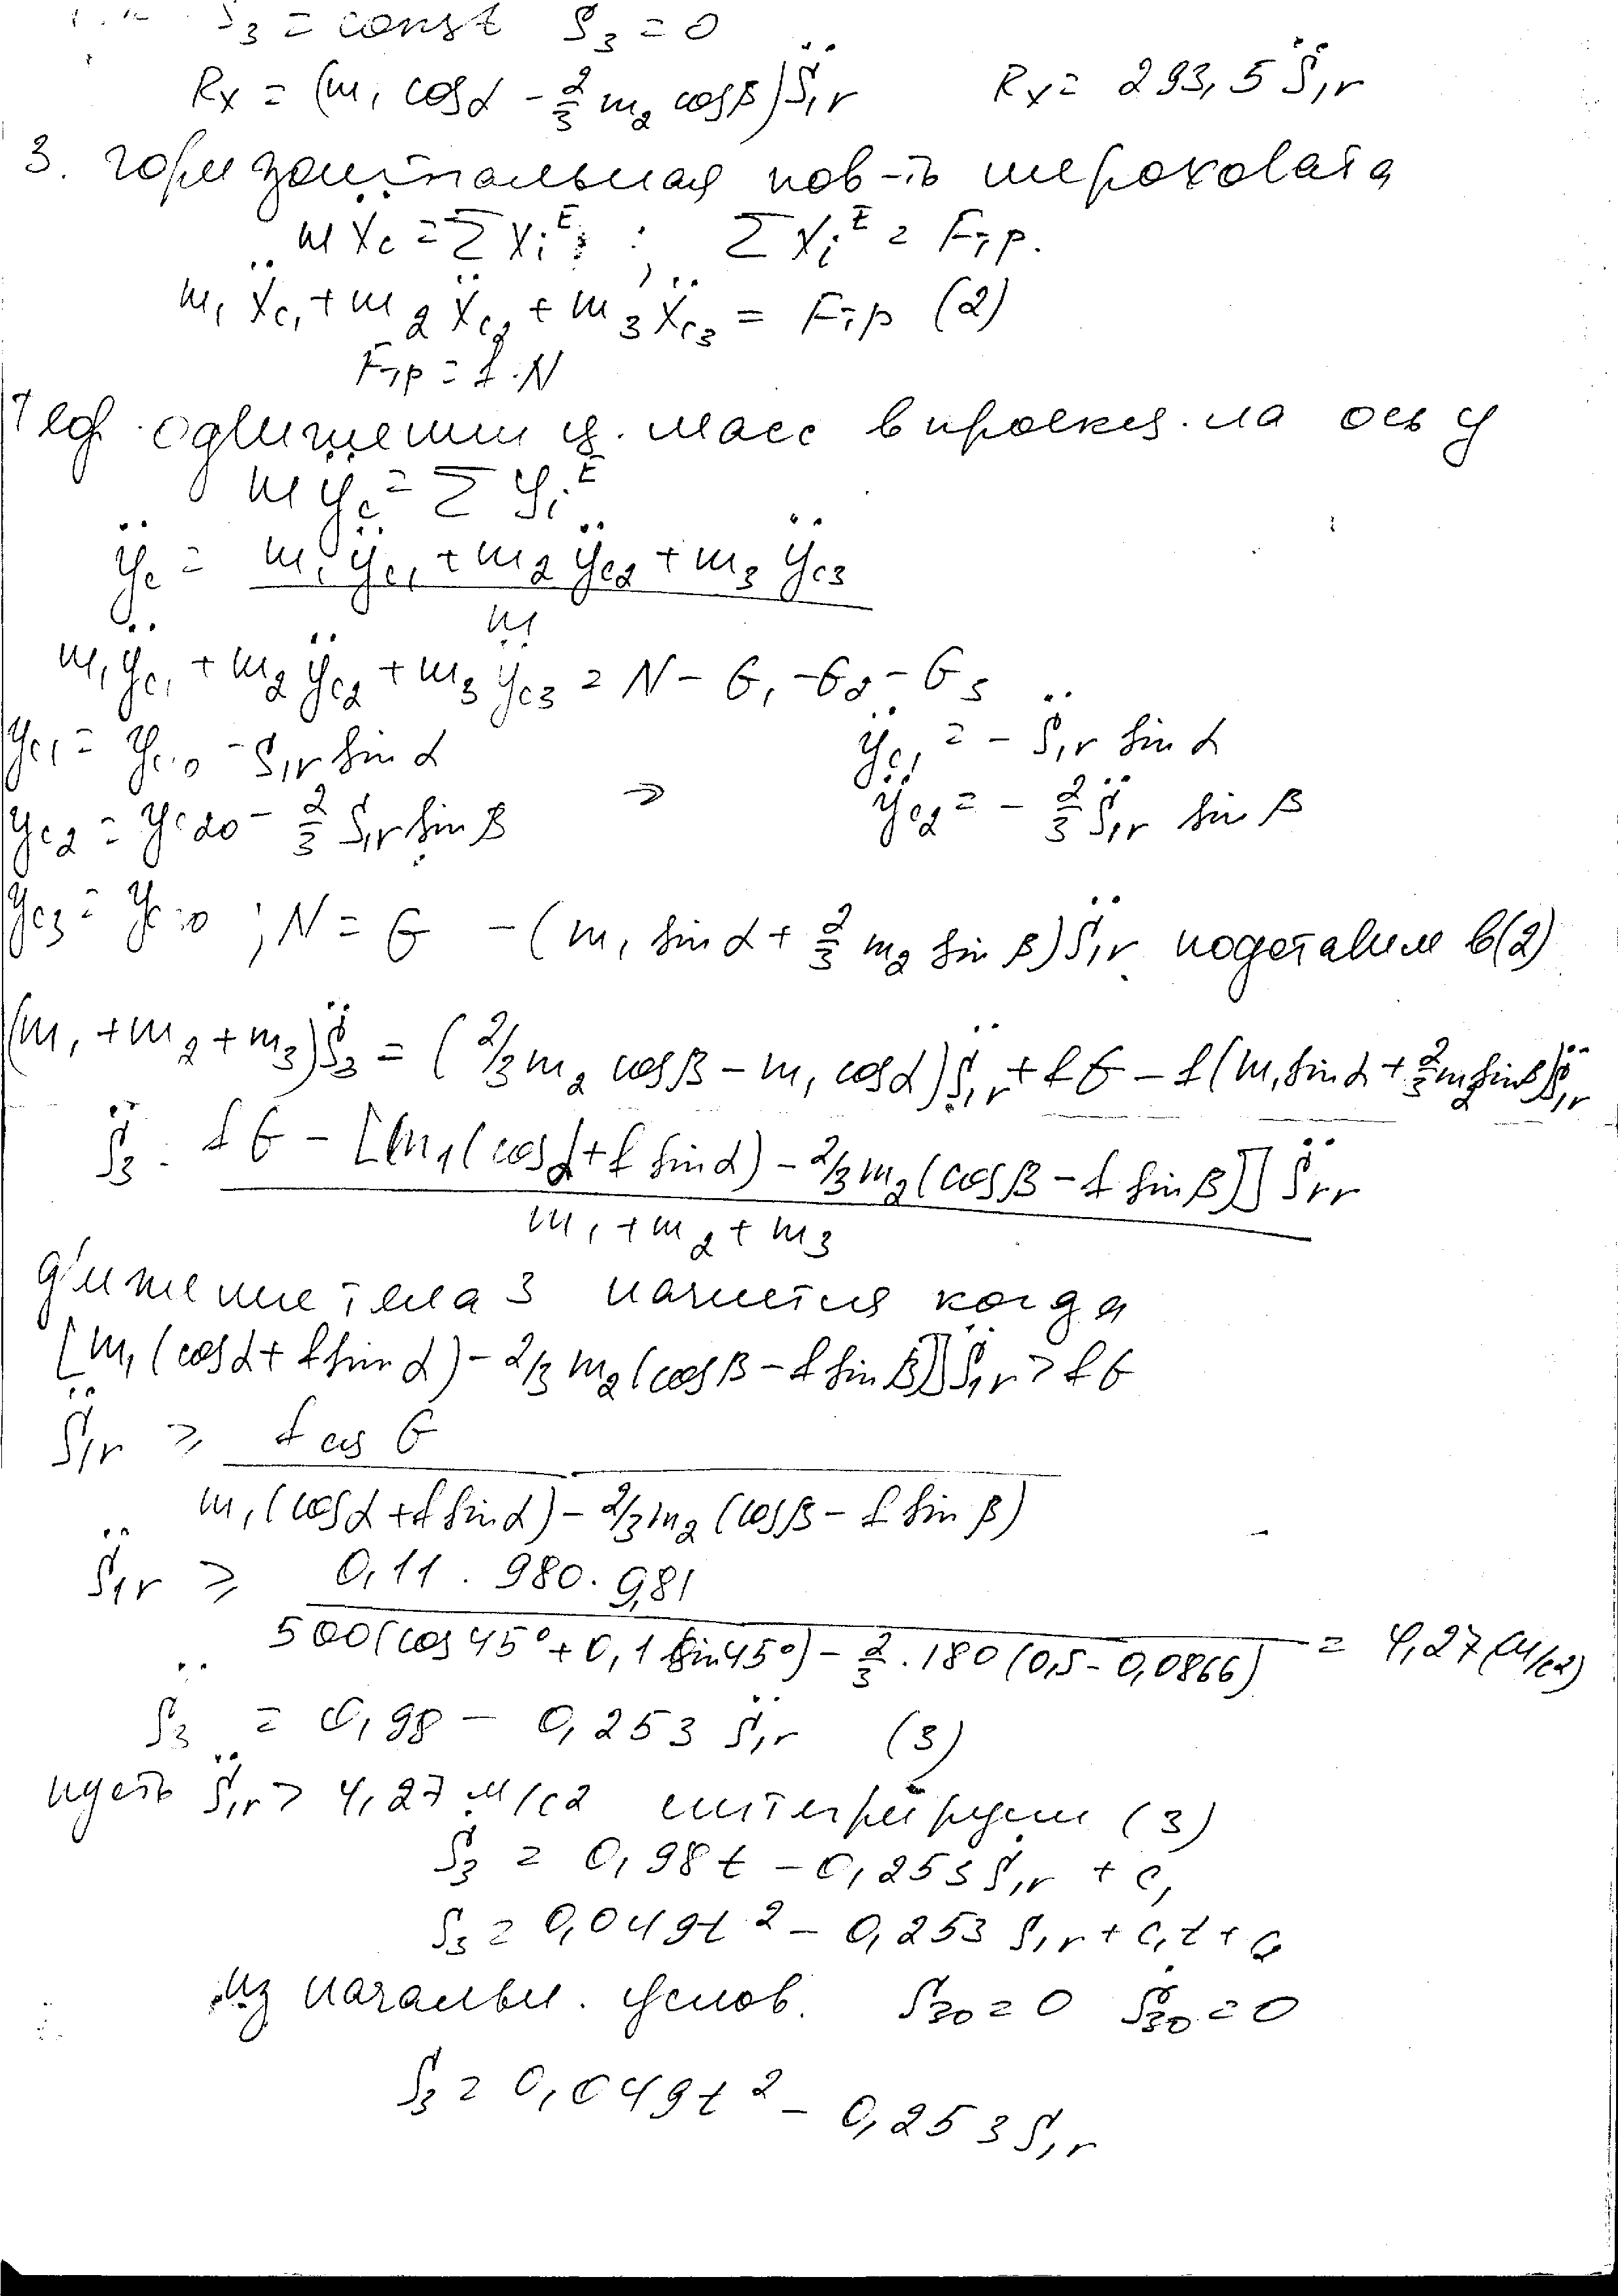 S₃ = const S₃ = 0
Rx = (m₁ cosα - 2/3 m₂ cosβ) S̈₁r Rx = 293,5 S̈₁r
3. горизонтальная пов-ть шероховата
mẌc = ΣXiᴱ ; ΣXiᴱ = Fтр.
m₁Ẍc₁ + m₂Ẍc₂ + m₃Ẍc₃ = Fтр (2)
Fтр = f·N
Теор. о движении ц. масс в проекц. на ось y
mÿc = ΣYiᴱ
ÿc = (m₁ÿc₁ + m₂ÿc₂ + m₃ÿc₃) / m
m₁ÿc₁ + m₂ÿc₂ + m₃ÿc₃ = N - G₁ - G₂ - G₃
yc₁ = yc₁₀ - S₁r sinα ÿc₁ = - S̈₁r sinα
yc₂ = yc₂₀ - 2/3 S₁r sinβ ⇒ ÿc₂ = - 2/3 S̈₁r sinβ
yc₃ = yc₃₀ ; N = G - (m₁ sinα + 2/3 m₂ sinβ) S̈₁r подставим в (2)
(m₁ + m₂ + m₃) S̈₃ = (2/3 m₂ cosβ - m₁ cosα) S̈₁r + fG - f(m₁ sinα + 2/3 m₂ sinβ) S̈₁r
S̈₃ = (fG - [m₁(cosα + f sinα) - 2/3 m₂(cosβ - f sinβ)] S̈₁r) / (m₁ + m₂ + m₃)
движение тела 3 начнется когда
[m₁(cosα + f sinα) - 2/3 m₂(cosβ - f sinβ)] S̈₁r > fG
S̈₁r ≥ f сц G / (m₁(cosα + f sinα) - 2/3 m₂(cosβ - f sinβ))
S̈₁r ≥ 0,11 · 980 · 9,81 / (500(cos45° + 0,1 sin45°) - 2/3 · 180(0,5 - 0,0866)) = 4,27 (м/с2)
S̈₃ = 0,98 - 0,253 S̈₁r (3)
пусть S̈₁r > 4,27 м/с2 интегрируем (3)
Ṡ₃ = 0,98t - 0,253 Ṡ₁r + c₁
S₃ = 0,049t² - 0,253 S₁r + c₁t + c₂
из начальн. услов. S₃₀ = 0 Ṡ₃₀ = 0
S₃ = 0,049t² - 0,253 S₁r